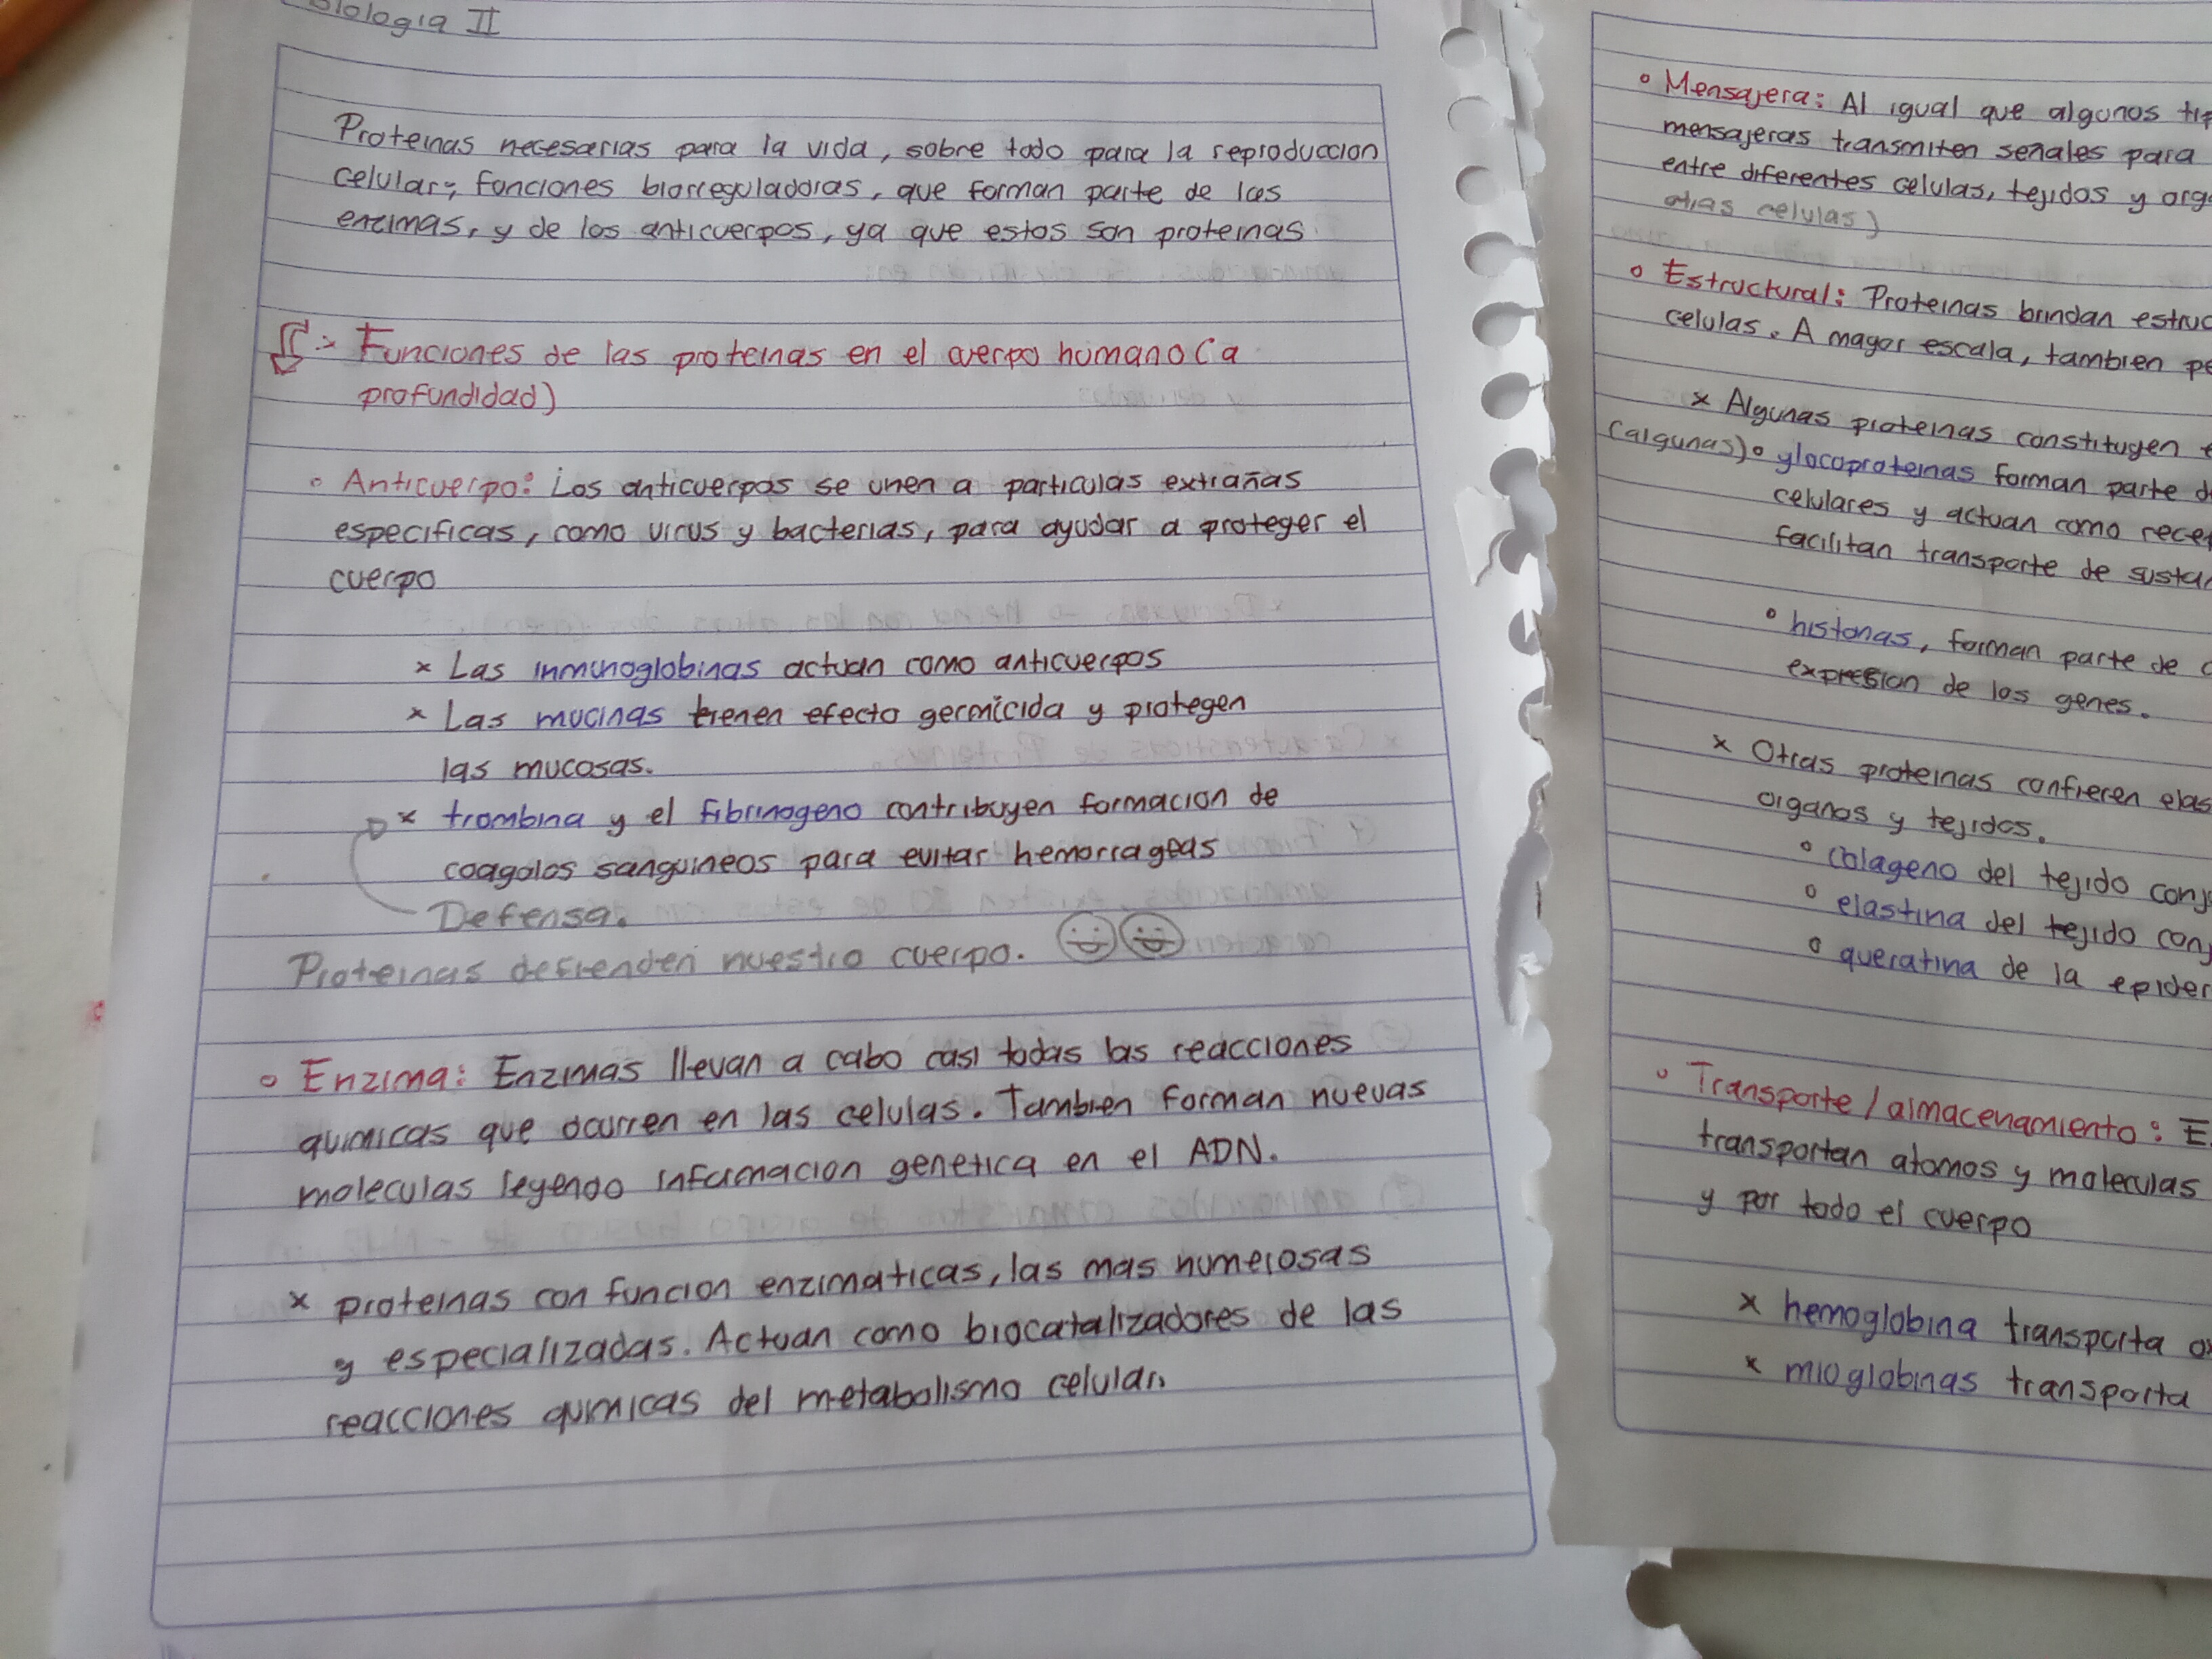 Biologia II
Proteinas necesarias para la vida, sobre todo para la reproduccion
celular; funciones biorreguladoras, que forman parte de las
enzimas, y de los anticuerpos, ya que estos son proteinas
Funciones de las proteinas en el cuerpo humano (a
profundidad)
Anticuerpo: Los anticuerpos se unen a particulas extrañas
especificas, como virus y bacterias, para ayudar a proteger el
cuerpo
x Las inmunoglobinas actuan como anticuerpos
x Las mucinas tienen efecto germicida y protegen
las mucosas.
x trombina y el fibrinogeno contribuyen formacion de
coagolos sanguineos para evitar hemorrageas
Defensa.
Proteinas defienden nuestro cuerpo.
Enzima: Enzimas llevan a cabo casi todas las reacciones
quimicas que ocurren en las celulas. Tambien forman nuevas
moleculas leyendo informacion genetica en el ADN.
x proteinas con funcion enzimaticas, las mas numerosas
y especializadas. Actuan como biocatalizadores de las
reacciones quimicas del metabolismo celular.
Mensajera: Al igual que algunos
mensajeras transmiten señales para
entre diferentes celulas, tejidos y
otras celulas)
Estructural: Proteinas brindan
celulas. A mayor escala, tambien
x Algunas proteinas constituyen
(algunas) glocoproteinas forman parte
celulares y actuan como
facilitan transporte de
histonas, forman parte de
expresion de los genes.
x Otras proteinas confieren
organos y tejidos.
colageno del tejido
elastina del tejido
queratina de la
Transporte / almacenamiento:
transportan atomos y moleculas
y por todo el cuerpo
x hemoglobina transporta
x mioglobinas transporta